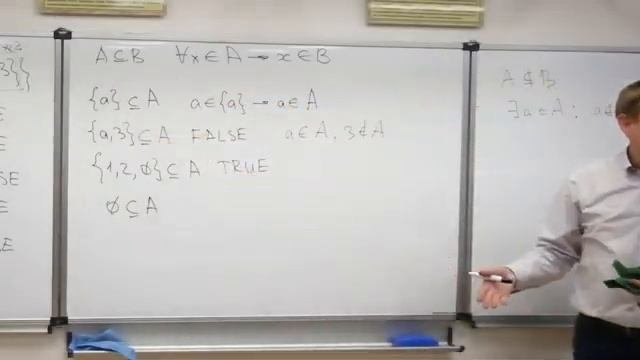 x3
3}}
E
E
SE
E
E
A⊆B ∀x∈A → x∈B
{a}⊆A a∈{a} → a∈A
{a,3}⊆A FALSE a∈A, 3∉A
{1,2,∅}⊆A TRUE
∅⊆A
A⊈B
∃a∈A: a∉